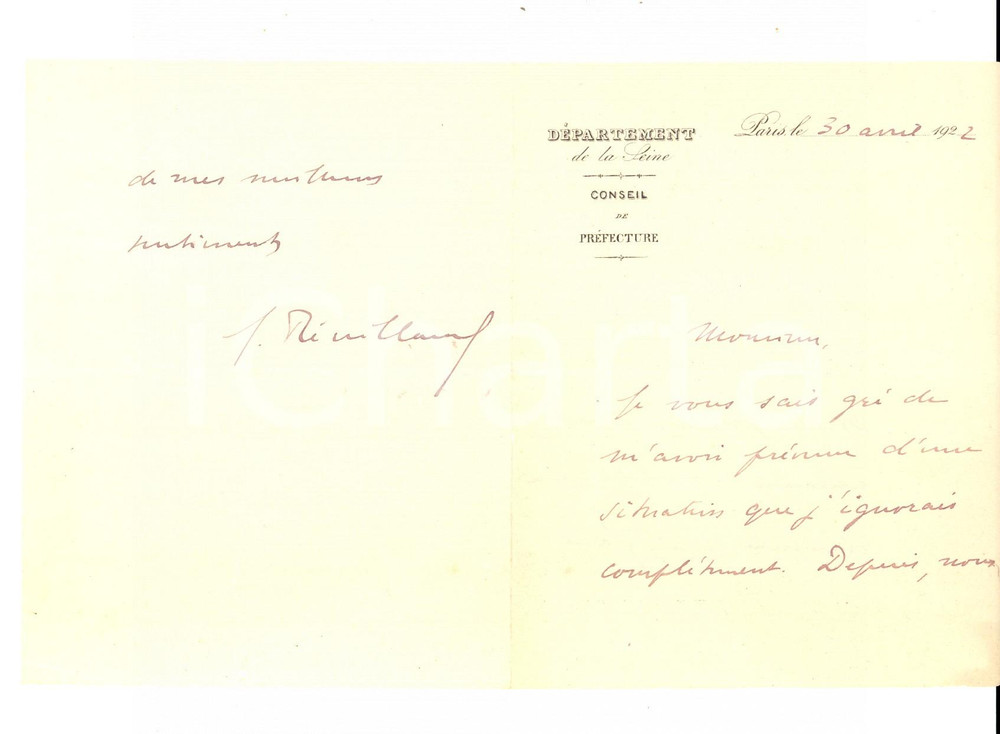 DÉPARTEMENT
de la Seine
CONSEIL
DE
PRÉFECTURE
Paris, le 30 avril 1922
Monsieur,
Je vous sais gré de
m'avoir prévenu d'une
situation que j'ignorais
complètement. Depuis, nous
de mes meilleurs
sentiments
iCharta